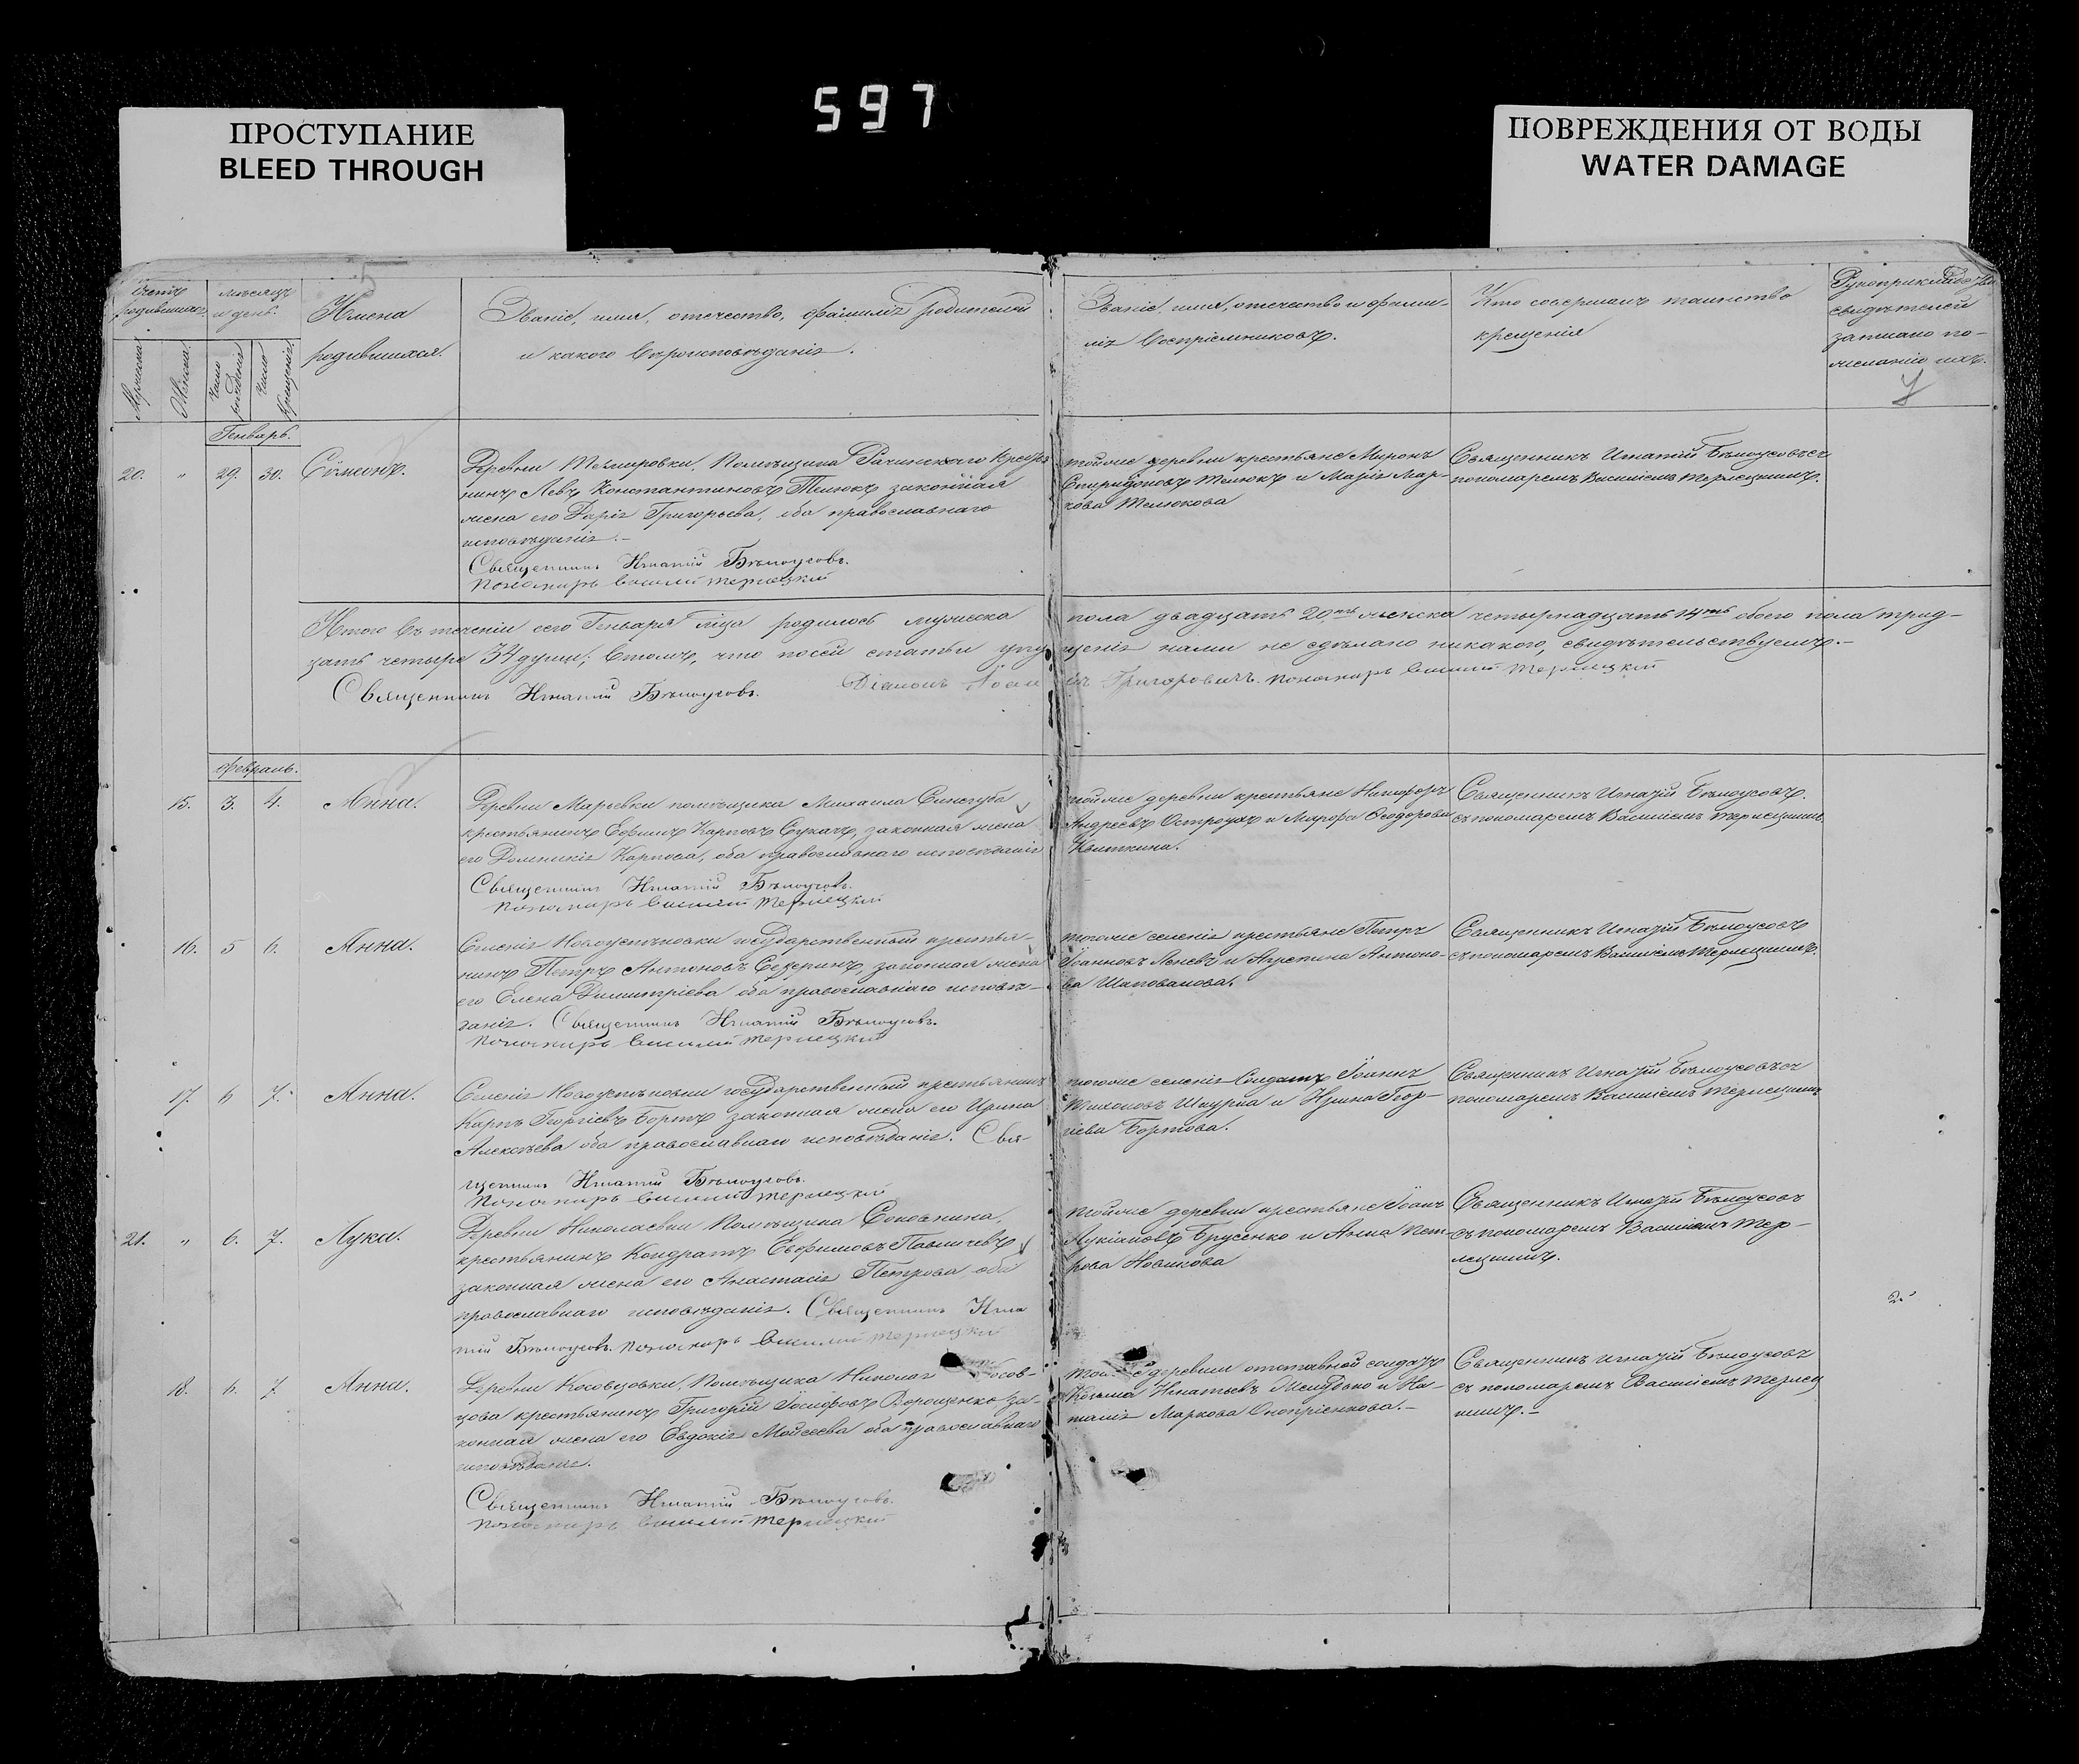 597
ПРОСТУПАНИЕ
BLEED THROUGH
ПОВРЕЖДЕНИЯ ОТ ВОДЫ
WATER DAMAGE
Счетъ родившихся.
мѣсяцъ и день.
Мужеска.
Женска.
Число рожденія
Число Крещенія
Имена
родившихся.
Званіе, имя, отечество, фамилія родителей
и какого вѣроисповѣданія.
Званіе, имя, отечество и фами-
лія воспріемниковъ.
Кто совершалъ таинство
крещенія
свидѣтелей
записано по-
желанію ихъ.
Генварь.
20. " 29. 30. Сѵмеонъ.
Деревни Помѣщика Рачинскаго Кресть
нинъ Левъ Константиновъ Телюкъ законная
жена его Дарія Григорьева, оба православнаго
исповѣданія.-
Священникъ Игнатій Бѣлоусовъ.
Пономарь Василій Терлецкій
тойже деревни крестьяне Миронъ
Спиридоновъ Телюкъ и Марія Мар-
кова Телюкова
Священникъ Игнатій Бѣлоусовъ съ
пономаремъ Василіемъ Терлецкимъ.
Итого въ теченіи сего Генваря мѣсяца родилось мужеска пола двадцать 20ть женска четырнадцать 14ть обоего пола трид-
цать четыре 34 души; втомъ, что посей статьи упу щенія нами не сдѣлано никакого, свидѣтельствуемъ.-
Священникъ Игнатій Бѣлоусовъ. Діаконъ Григоровичъ. Пономарь Василій Терлецкій
Февраль.
15. 3. 4. Анна.
Деревни Марьевки помѣщика Михаила Синегуба
крестьянинъ Ефимъ Карповъ Сукачъ, законная жена
его Домникія Карпова, оба православнаго исповѣданія
Священникъ Игнатій Бѣлоусовъ.
Пономарь Василій Терлецкій
тойже деревни крестьяне Никифоръ
Андреевъ Остроухъ и Марфа Ѳеодорова
Священникъ Игнатій Бѣлоусовъ.
съ пономаремъ Василіемъ Терлецкимъ
16. 5 6. Анна.
Селенія Новоуспеновки государственный крестья-
нинъ Петръ Антоновъ Северинъ, законная жена
его Елена Димитріева оба православнаго исповѣ-
данія. Священникъ Игнатій Бѣлоусовъ.
Пономарь Василій Терлецкій
тогоже селенія крестьяне Петръ
Іоанновъ и Агрепина Антоно-
ва Шаповалова.
Священникъ Игнатій Бѣлоусовъ
съ пономаремъ Василіемъ Терлецкимъ.
17. 6 7. Анна.
Селенія Новоуспеновки государственный крестьянинъ
Карпъ Георгіевъ Бортъ законная жена его Ирина
Алексѣева оба православнаго исповѣданія. Свя-
щенникъ Игнатій Бѣлоусовъ.
Пономарь Василій Терлецкій
тогоже селенія Солдатъ Іоаннъ
Тихоновъ Шкурка и Ирина Геор-
гіева Бортова.
Священникъ Игнатій Бѣлоусовъ съ
пономаремъ Василіемъ Терлецкимъ
21. " 6. 7. Лука.
Деревни Николаевки Помѣщика Соковнина,
крестьянинъ Кондратъ Евфимовъ Павличевъ
законная жена его Анастасія Петрова оба
православнаго исповѣданія. Священникъ Игна
тій Бѣлоусовъ. Пономарь Василій Терлецкій
тойже деревни крестьяне Іоанъ
Лукіановъ Брусенко и Анна Пет-
рова Новикова
Священникъ Игнатій Бѣлоусовъ
съ пономаремъ Василіемъ Тер-
лецкимъ.
2.
18. 6. 7 Анна.
Деревни Косовцовки, Помѣщика Николая Косов-
цова крестьянинъ Григорій Іосифовъ Ворощенко за-
конная жена его Евдокія Мойсеева оба православнаго
исповѣданія.
Священникъ Игнатій Бѣлоусовъ.
Пономарь Василій Терлецкій
деревни отставной солдатъ
Козьма Игнатьевъ и На-
талія Маркова Онопріенкова.-
Священникъ Игнатій Бѣлоусовъ
съ пономаремъ Василіемъ Терлец
кимъ.-